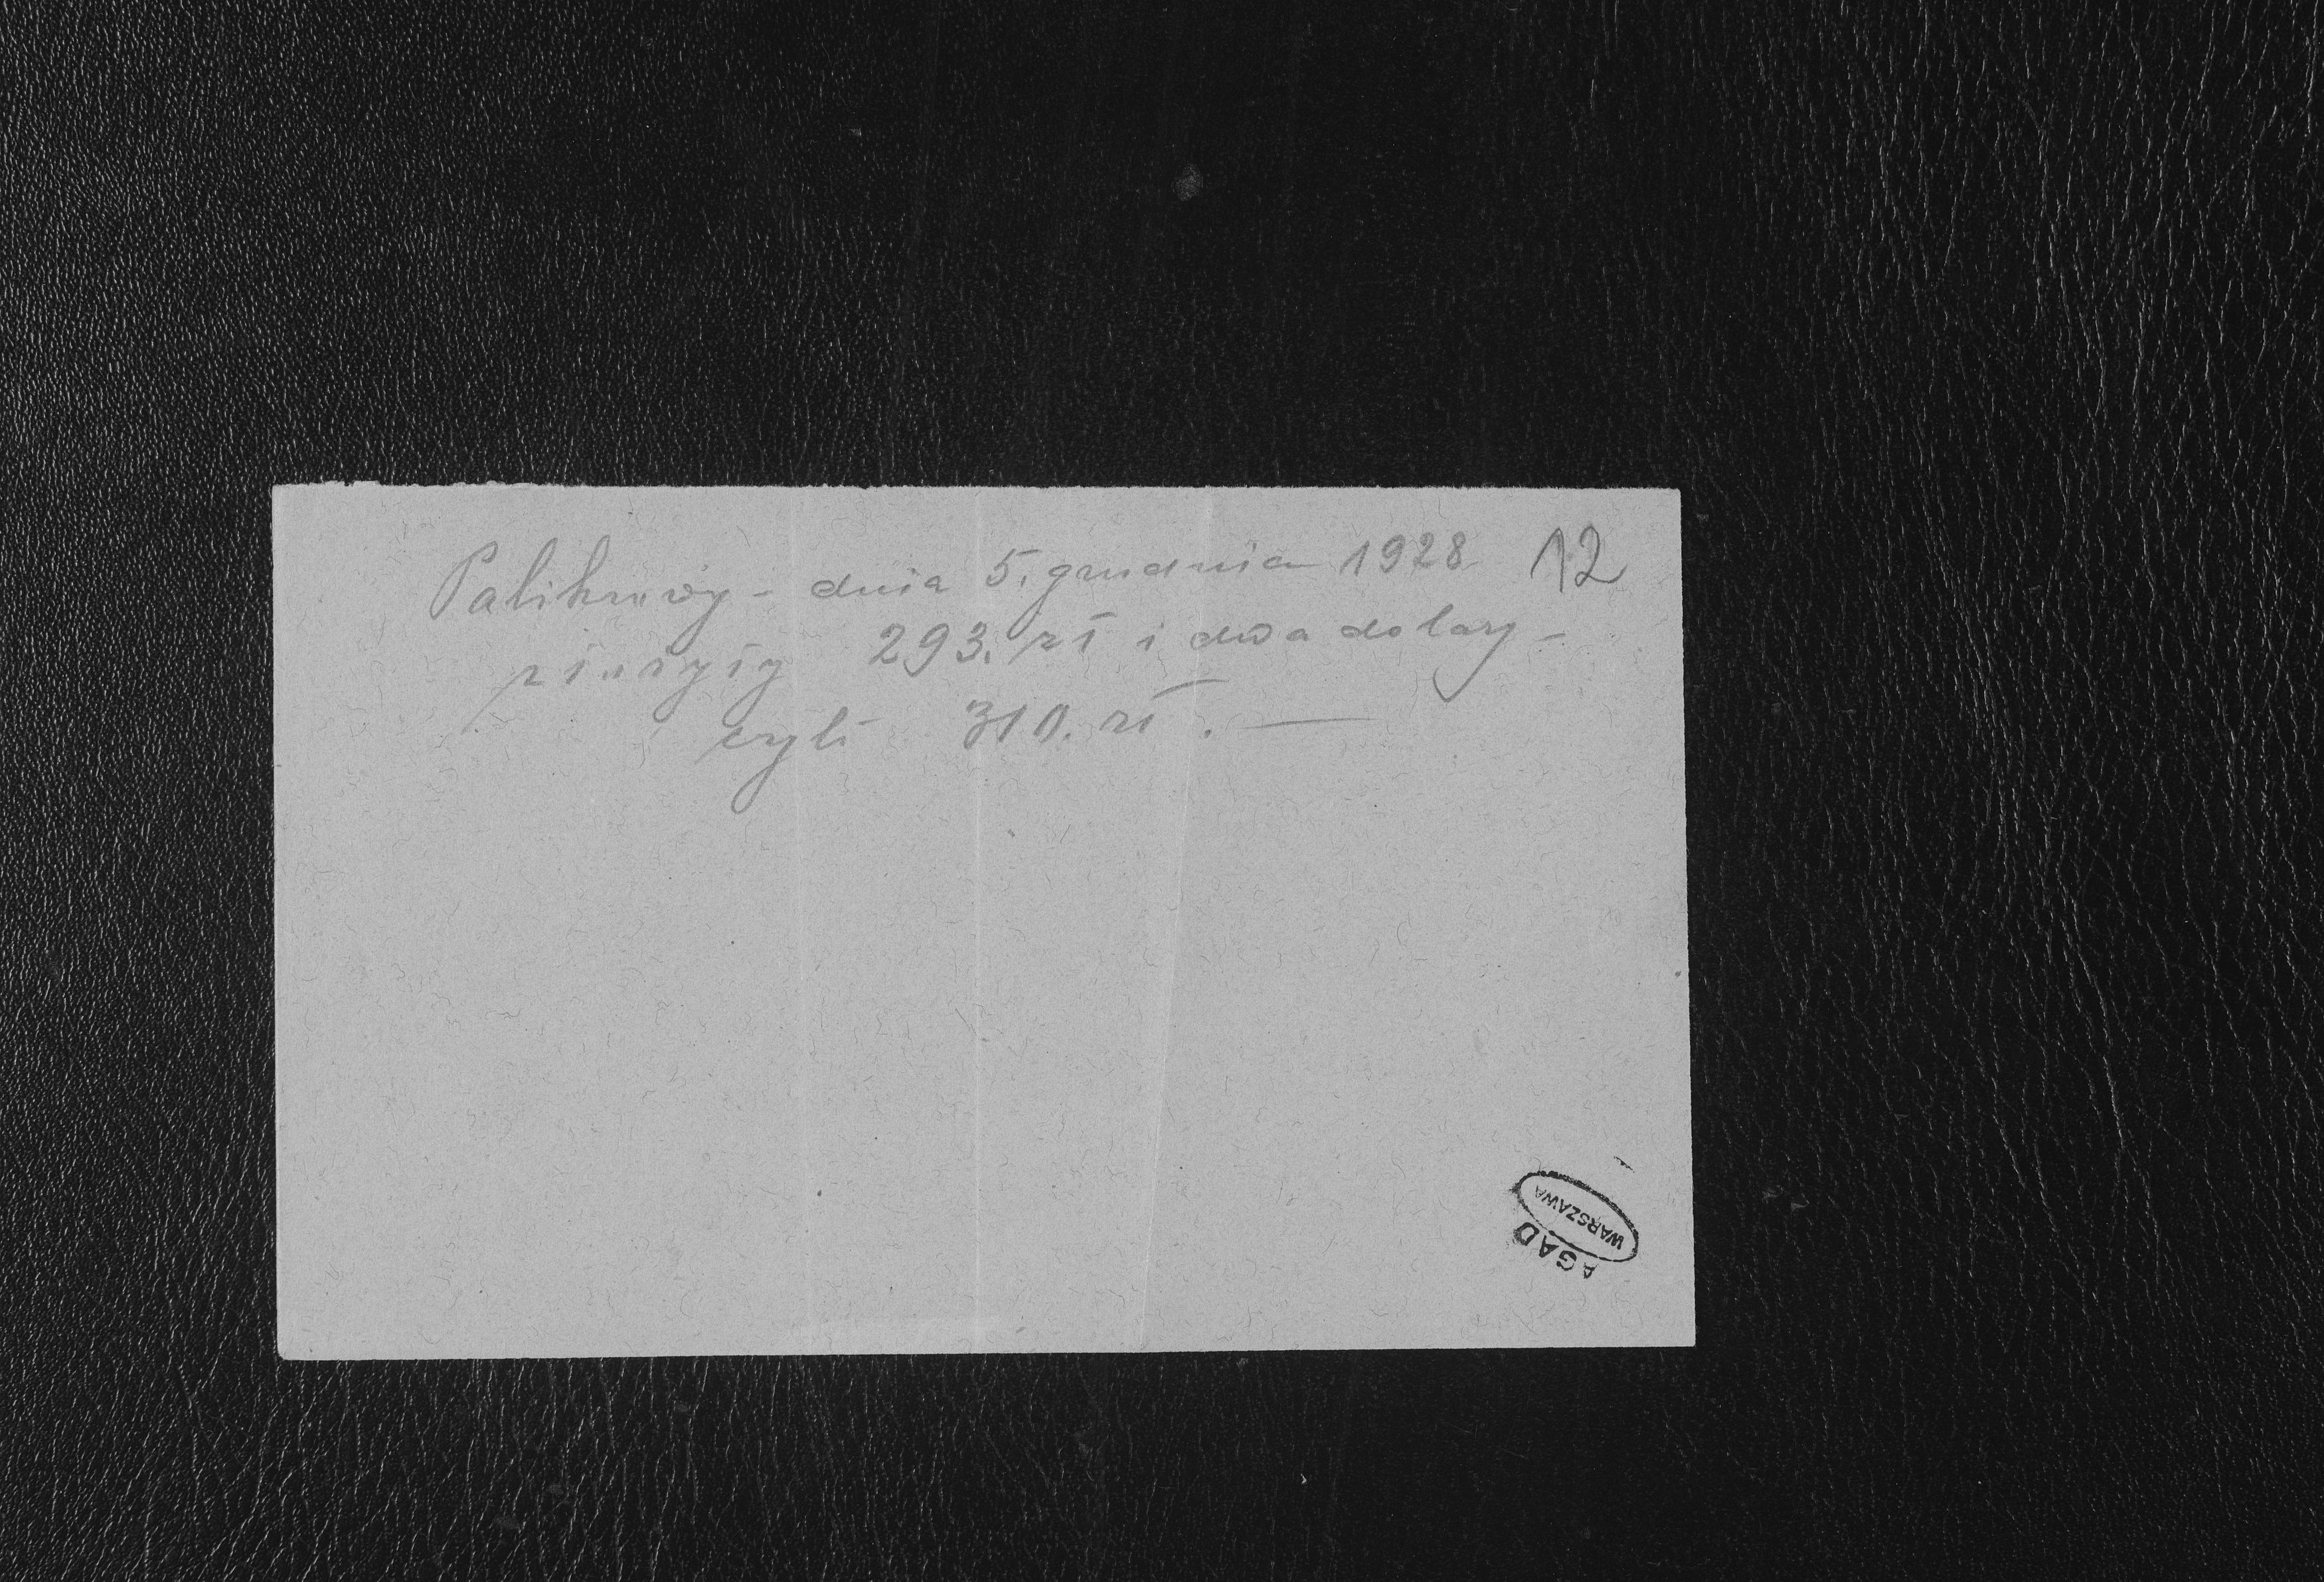 Palikrowy - dnia 5. grudnia 1928 12
293. zł i dwa dolary -
czyli 310. zł. —
WARSZAWA
AGAD